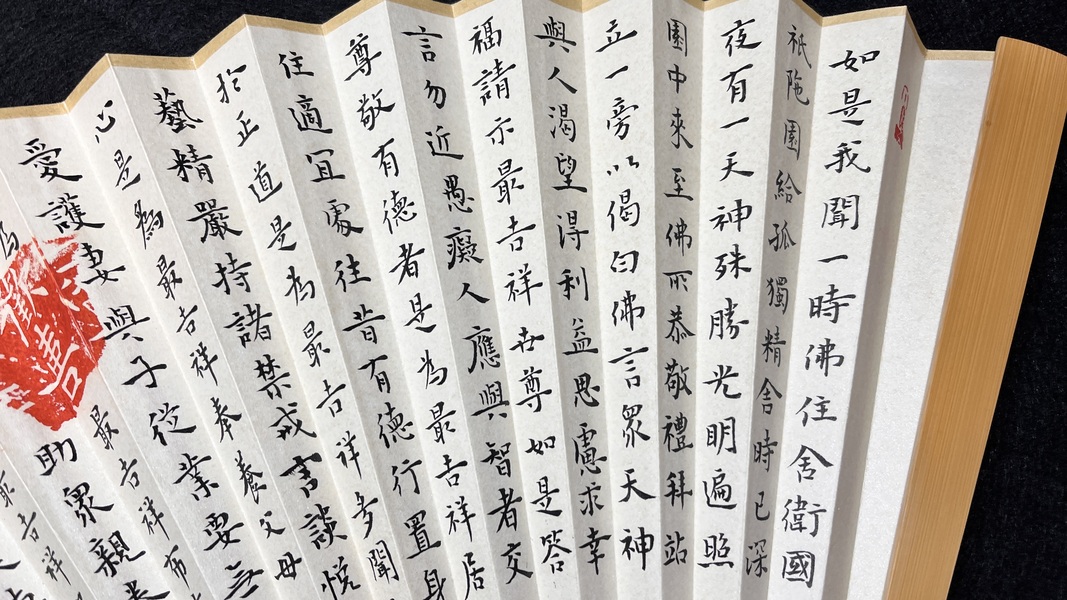 如是我聞一時佛住舍衛國
祇陁園給孤獨精舍時已深
夜有一天神殊勝光明遍照
園中來至佛所恭敬禮拜站
立一旁以偈白佛言眾天神
與人渴望得利益思慮求幸
福請示最吉祥世尊如是答
言勿近愚癡人應與智者交
尊敬有德者是為最吉祥居
住適宜處往昔有德行置身
於正道是為最吉祥多聞
藝精嚴持諸禁戒言談悅
心是為最吉祥奉養父母
愛護妻與子從業要無
最吉祥布
助眾親眷
最吉祥